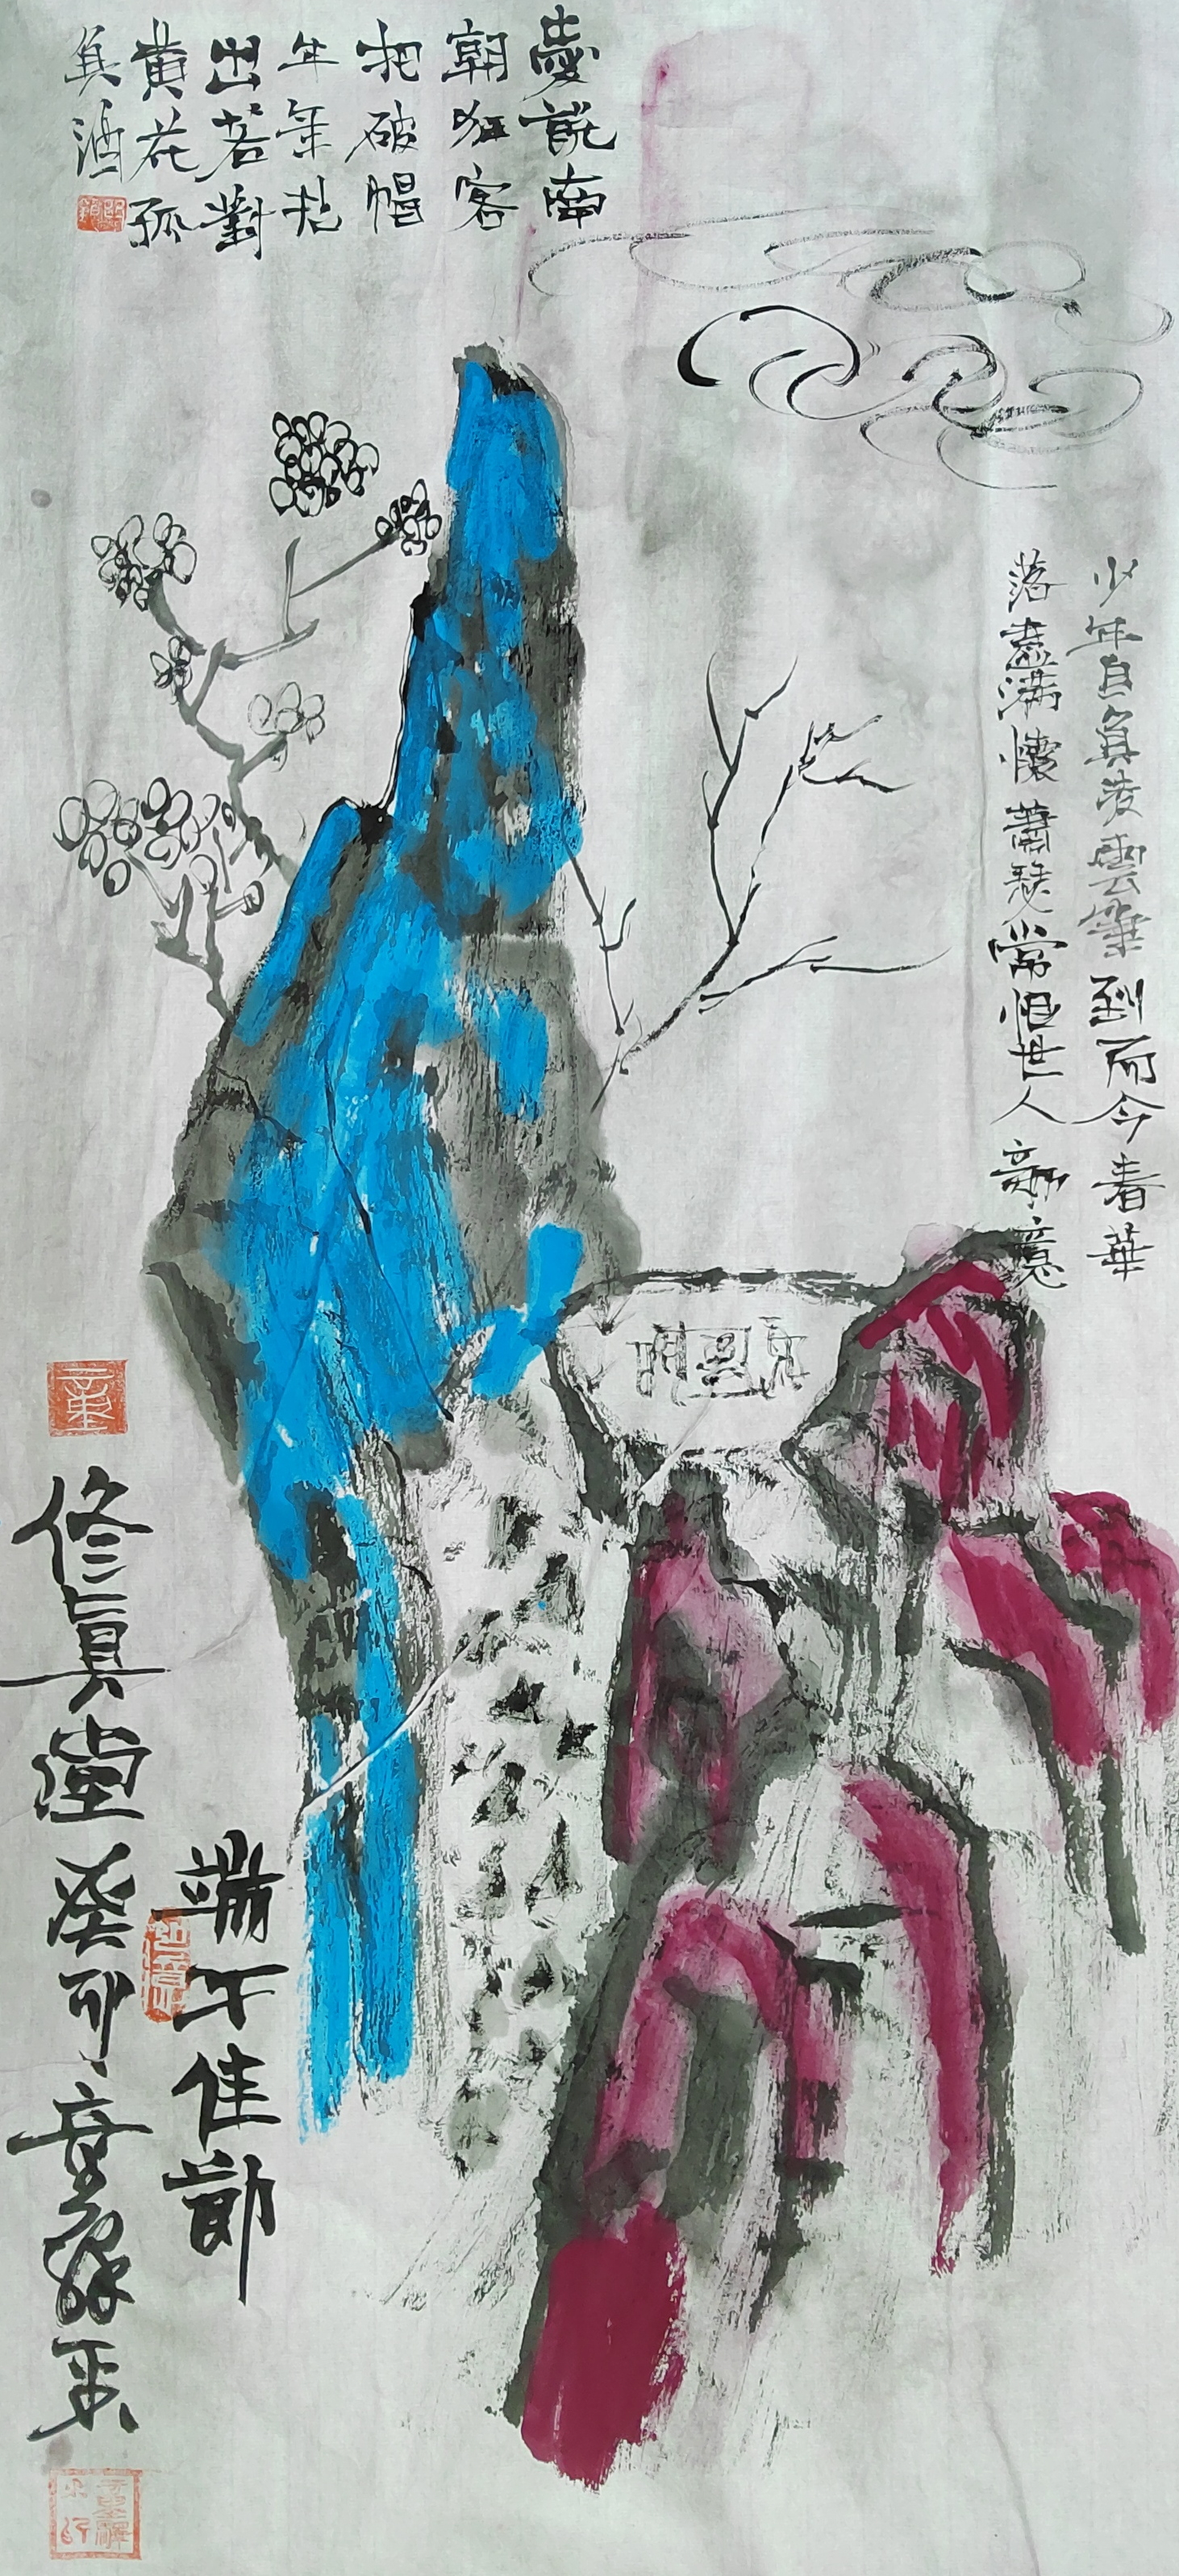 少年自負凌雲筆到而今春華
落盡滿懷蕭瑟常恨世人新意
愛説南
朝狂客
把破帽
年年拈
出若對
黃花孤
負酒
端午佳節
修真堂癸卯